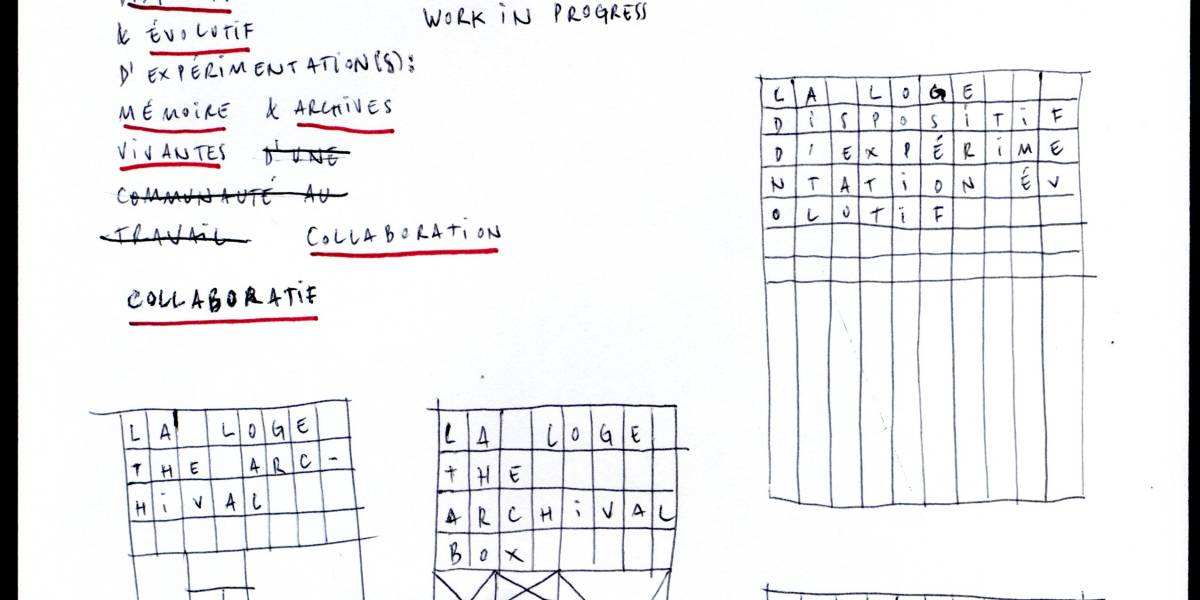 WORK IN PROGRESS
& ÉVOLUTIF
D'EXPÉRIMENTATION(S):
MÉMOIRE & ARCHIVES
VIVANTES D'UNE
COMMUNAUTÉ AU
TRAVAIL COLLABORATION
COLLABORATIF
LA LOGE
DISPOSITIF
D'EXPÉRIME
NTATION ÉV
OLUTIF
LA LOGE
THE ARC-
HIVAL
LA LOGE
THE
ARCHIVAL
BOX